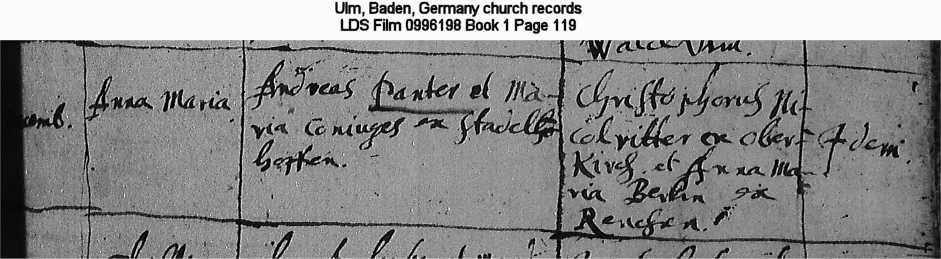 Ulm, Baden, Germany church records
LDS Film 0996198 Book 1 Page 119
Waldulm.
emb.
Anna Maria
Andreas Panter et Ma-
ria Coniuges ex Stadel
hoffen.
Christophorus Ni-
col ritter ex Ober-
Kirch. et Anna Ma-
ria Berlin ex
Renchen.
Idem.